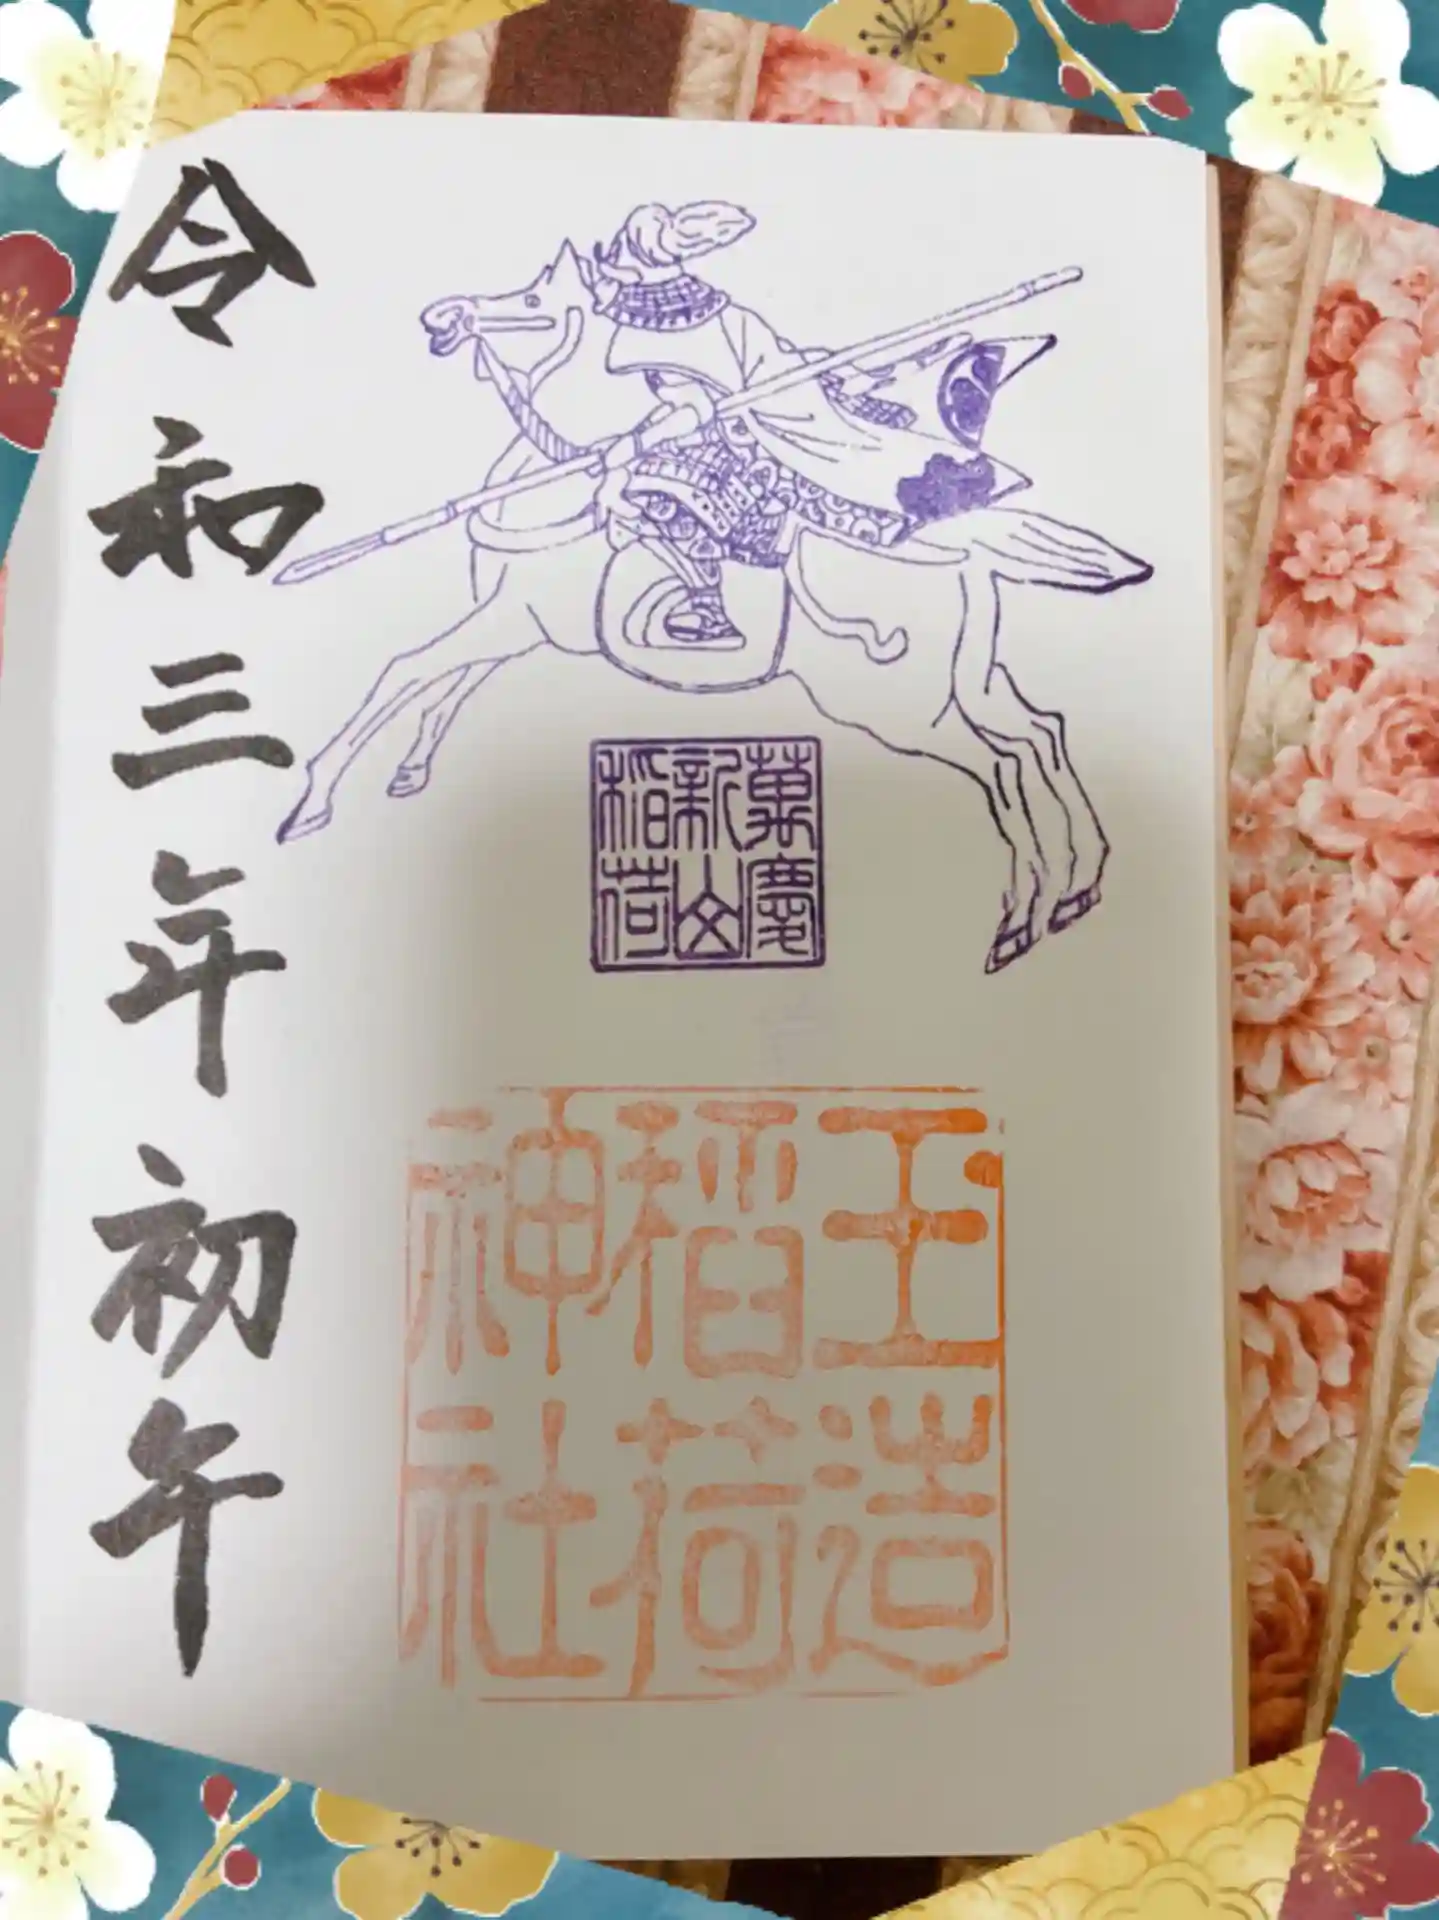 萬慶
新山
稲荷
玉造
稲荷
神社
令和三年初午